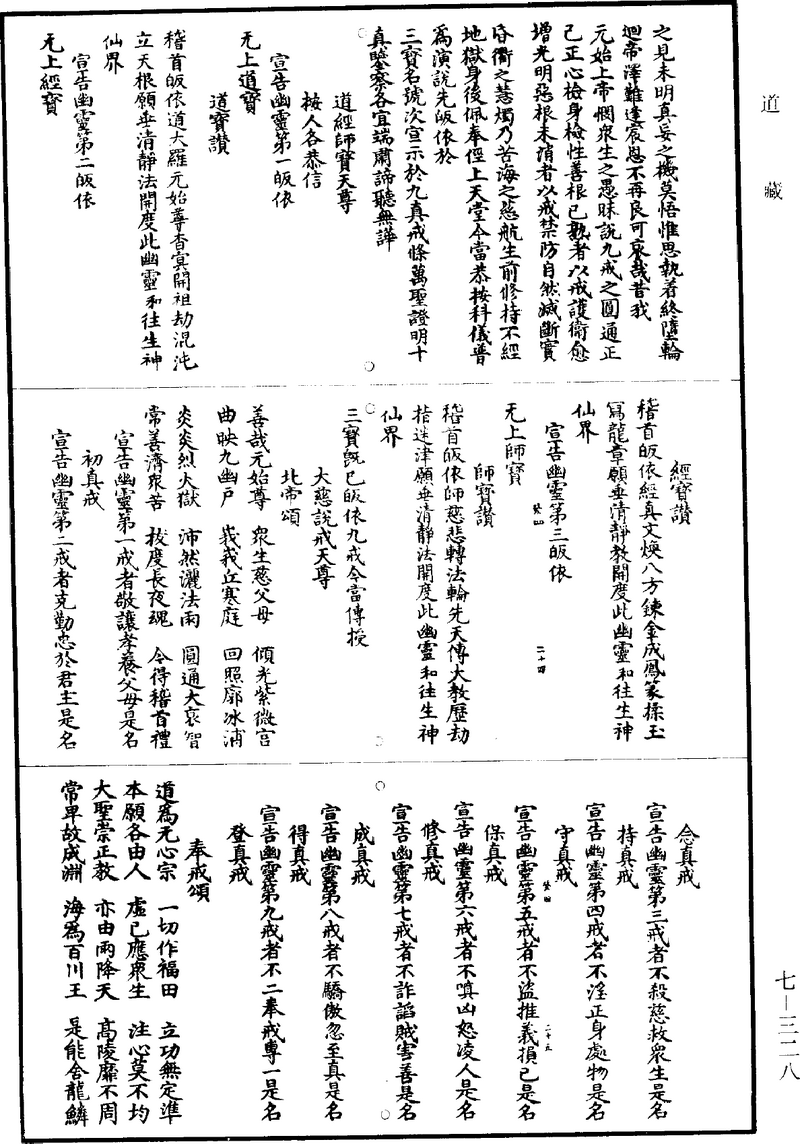 道藏
之見未明真妄之機莫悟惟思執着終墮輪
迴帝澤難逢宸恩不再良可哀哉昔我
元始上帝憫衆生之愚昧說九戒之圓通正
己正心檢身檢性善根已熟者以戒護衛愈
增光明惡根未消者以戒禁防自然滅斷實
昏衢之慧燭乃苦海之慈航生前修持不經
地獄身後佩奉徑上天堂今當恭按科儀普
爲演說先皈依於
三寶名號次宣示於九真戒條萬聖證明十
真鑒察各宜端肅諦聽無譁
道經師寶天尊
按人各恭信
宣告幽靈第一皈依
无上道寶
道寶讚
稽首皈依道大羅元始尊杳冥開祖劫混沌
立天根願垂清靜法開度此幽靈和往生神
仙界
宣告幽靈第二皈依
无上經寶
經寶讚
稽首皈依經真文煥八方鍊金成鳳篆揲玉
寫龍章願垂清靜教開度此幽靈和往生神
仙界
宣告幽靈第三皈依
无上師寶
師寶讚
稽首皈依師慈悲轉法輪先天傳大教歷劫
指迷津願垂清靜法開度此幽靈和往生神
仙界
三寶既已皈依九戒今當傳授
大慈說戒天尊
北帝頌
善哉元始尊 衆生慈父母 傾光紫微宫
曲映九幽戶 莪莪丘寒庭 回照廓冰浦
炎炎烈火獄 沛然灑法雨 圓通大哀智
常善濟衆苦 拔度長夜魂 令得稽首禮
宣告幽靈第一戒者敬讓孝養父母是名
初真戒
宣告幽靈第二戒者克勤忠於君主是名
念真戒
宣告幽靈第三戒者不殺慈救衆生是名
持真戒
宣告幽靈第四戒者不淫正身處物是名
守真戒
宣告幽靈第五戒者不盜推義損已是名
保真戒
宣告幽靈第六戒者不嗔凶怒凌人是名
修真戒
宣告幽靈第七戒者不詐謟賊害善是名
成真戒
宣告幽靈第八戒者不驕傲忽至真是名
得真戒
宣告幽靈第九戒者不二奉戒專一是名
登真戒
奉戒頌
道爲无心宗 一切作福田 立功無定準
本願各由人 虛已應衆生 注心莫不均
大聖崇正教 亦由雨降天 高陵靡不周
常卑故成淵 海爲百川王 是能舍龍鱗
七—三二八